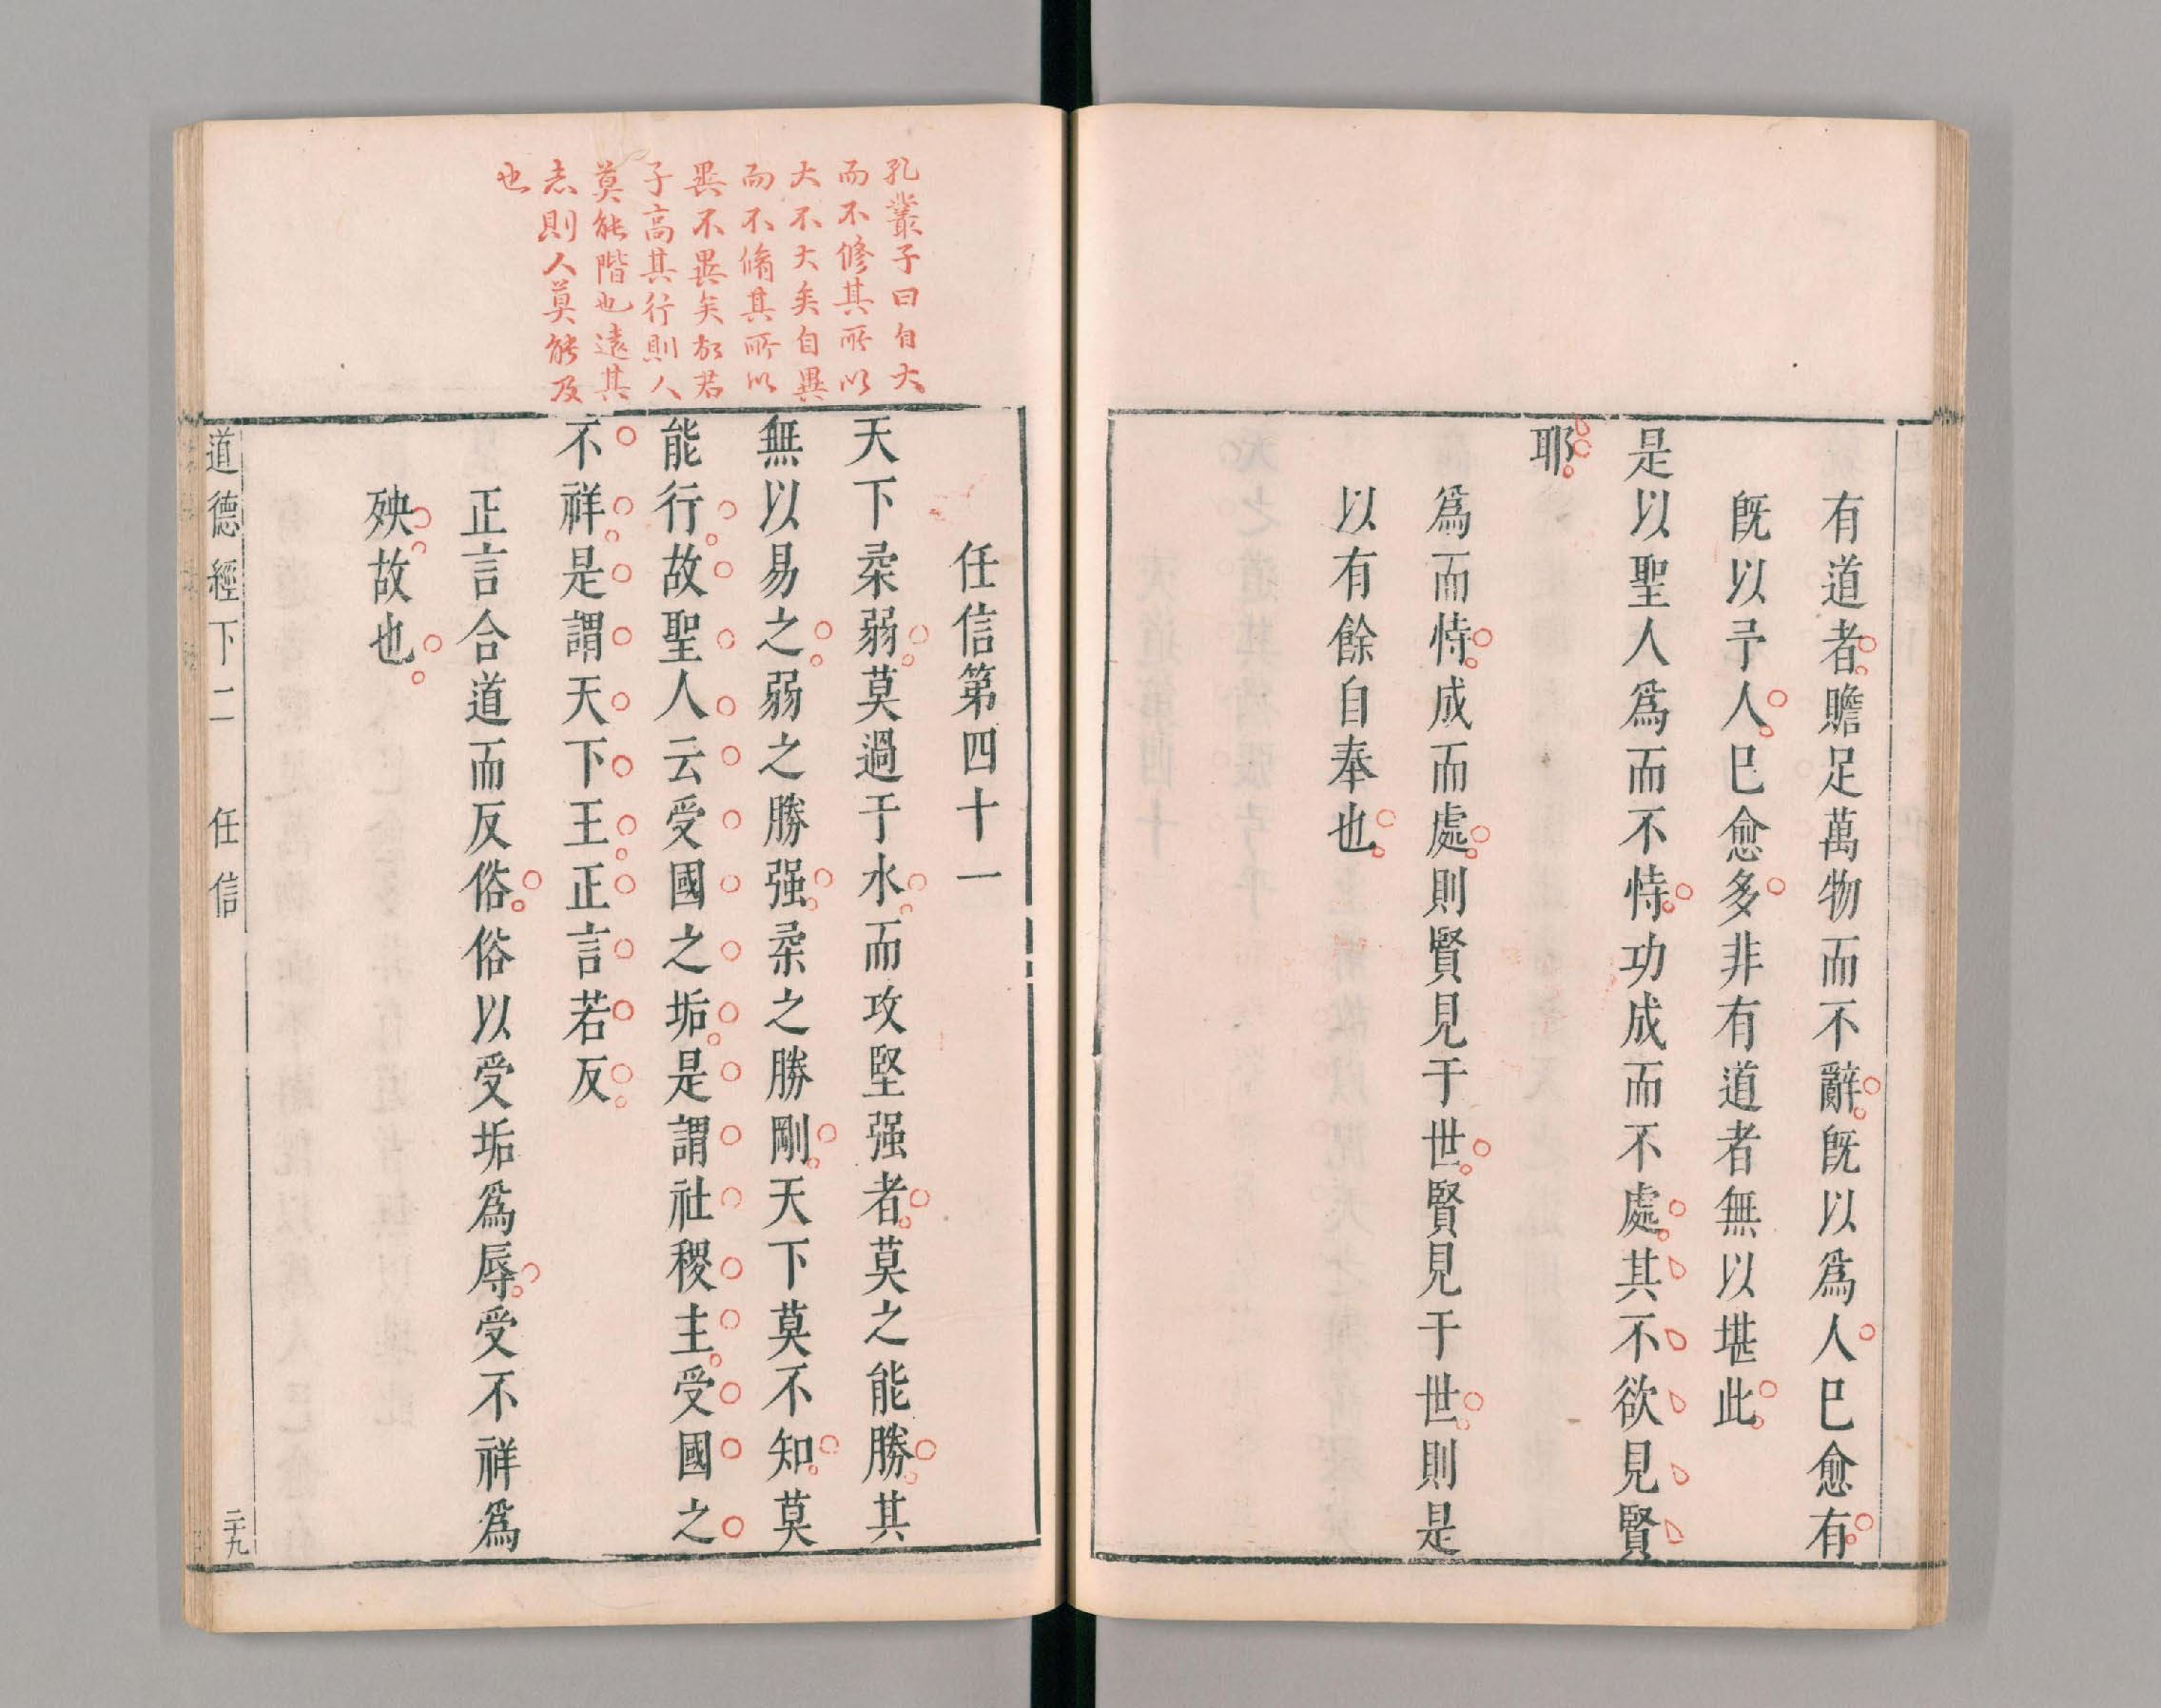 有道者贍足萬物而不辭旣以爲人巳愈有
旣以予人巳愈多非有道者無以堪此
是以聖人爲而不恃功成而不處其不欲見賢
耶
爲而恃成而處則賢見于世賢見于世則是
以有餘自奉也
孔叢子曰自大
而不修其所以
大不大矣自異
而不脩其所以
異不異矣故君
子高其行則人
莫能階也遠其
志則人莫能及
也
任信第四十一
天下柔弱莫過于水而攻堅强者莫之能勝其
無以易之弱之勝强柔之勝剛天下莫不知莫
能行故聖人云受國之垢是謂社稷主受國之
不祥是謂天下王正言若反
正言合道而反俗俗以受垢爲辱受不祥爲
殃故也
道德經下二 任信
二十九